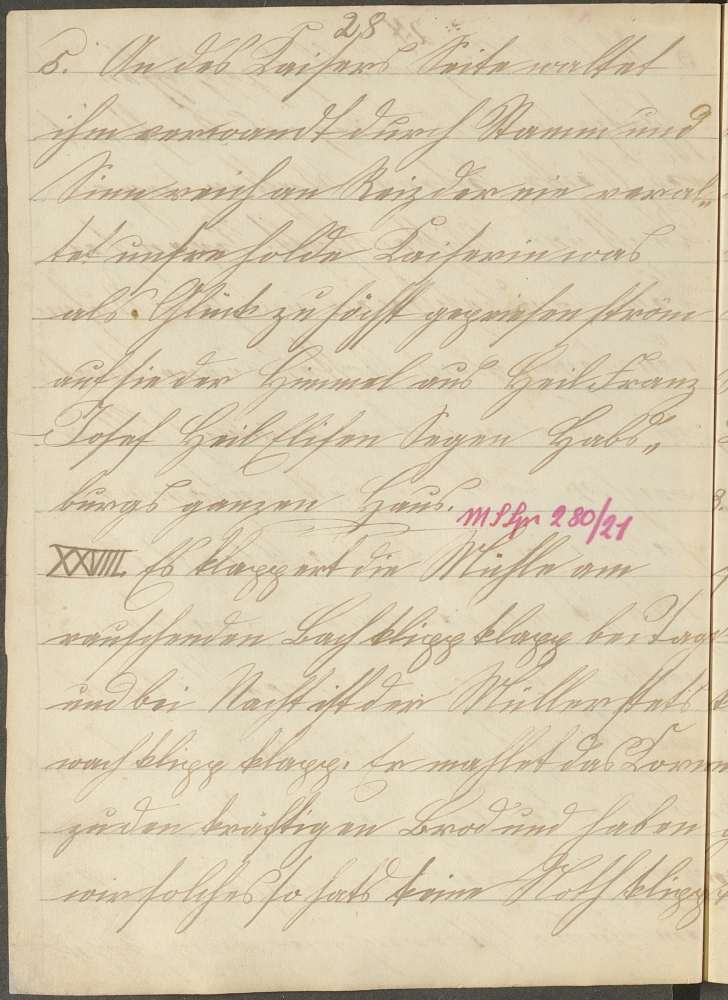 28
5. An des Kaisers Seite waltet
ihm verwandt durch Stamm und
Sinn reich an Reiz der nie veral„
tet unsre holde Kaiserin was
als Glück zu höchst gepriesen ström
auf sie der Himmel aus Heil Franz
Josef Heil Elisen Segen Habs„
burgs ganzen Haus.
MSgr 280/21
XXVIII. Es klappert die Mühle am
rauschenden Bach klipp klapp bei Tag
und bei Nacht ist der Müller stets
wach klipp klapp. Er mahlet das Korn
zu den kräftigen Brod und haben
wir solches so hats keine Noth klipp